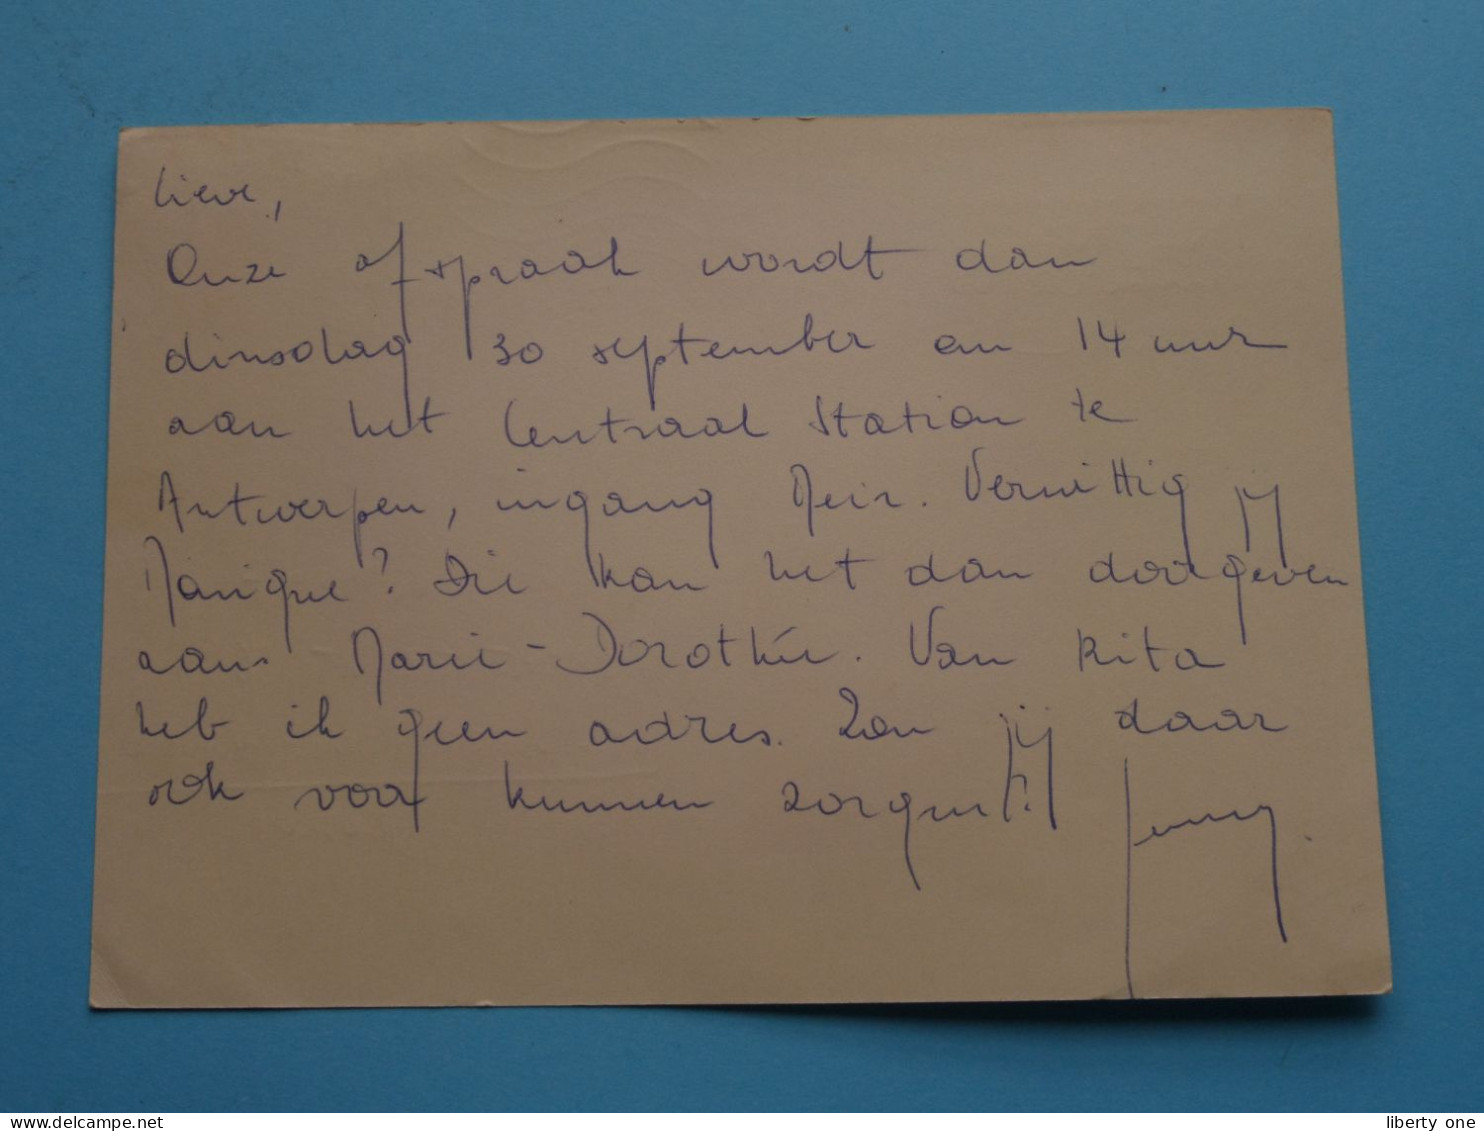 Lieve,
Onze afspraak wordt dan
dinsdag 30 september om 14 uur
aan het Centraal Station te
Antwerpen, ingang Meir. Verwittig jij
Monique? Die kan het dan doorgeven
aan Marie-Dorothée. Van Rita
heb ik geen adres. Zou jij daar
ook voor kunnen zorgen?
Jenny.
www.delcampe.net
liberty one